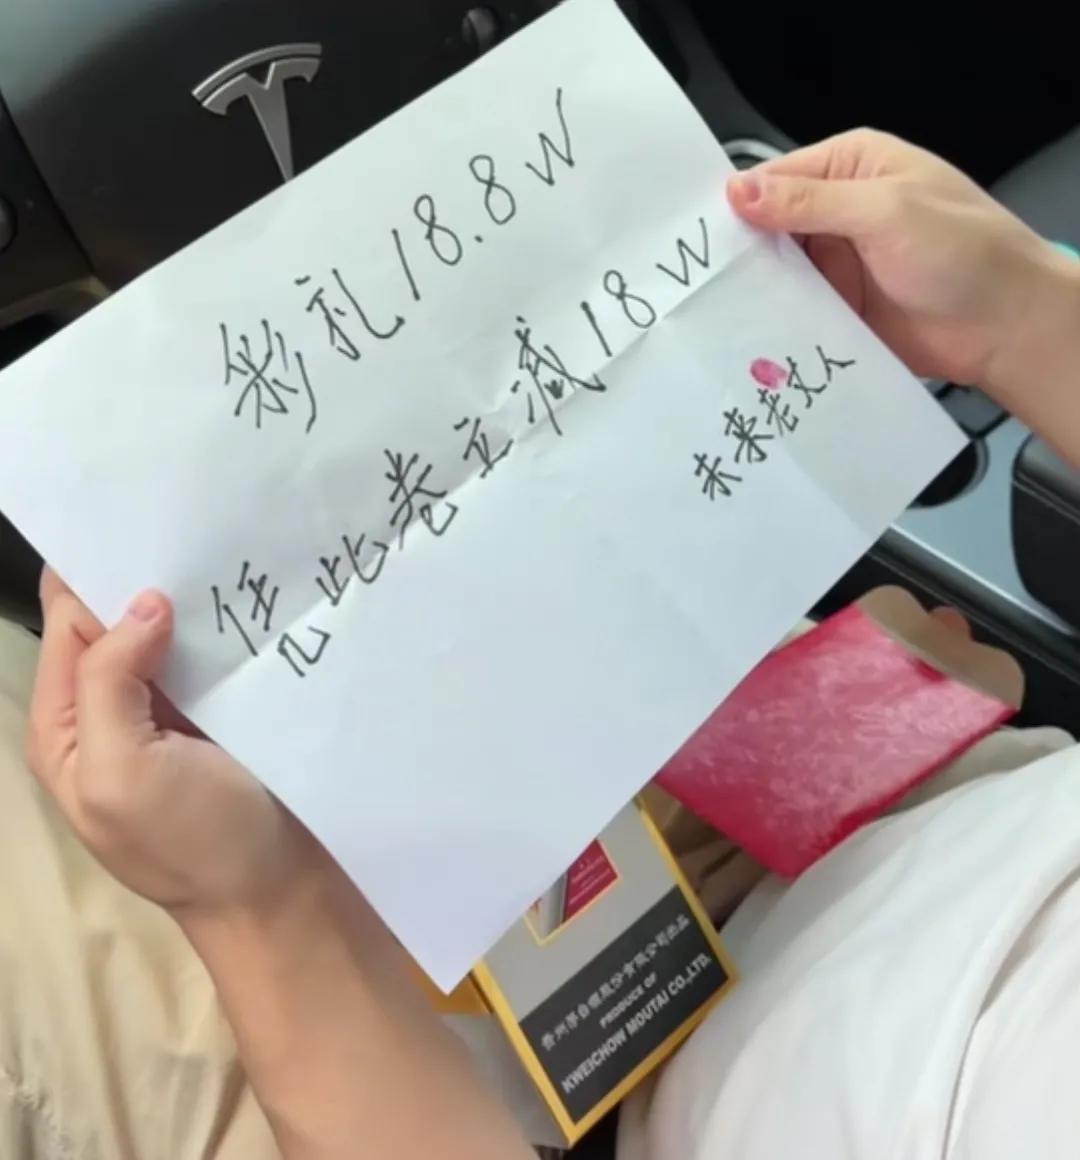 彩礼18.8W
凭此卷立减18W
未来老丈人
贵州茅台酒股份有限公司出品
PRODUCE OF
KWEICHOW MOUTAI CO.,LTD.